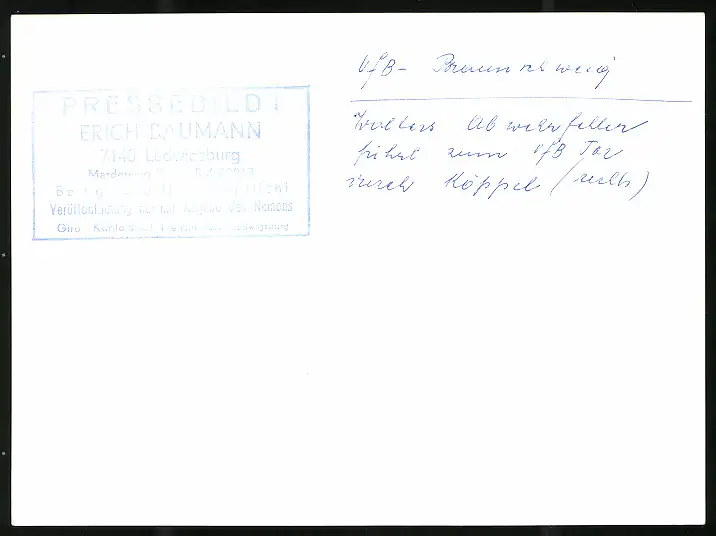 PRESSEBILD
ERICH BAUMANN
7140 Ludwigsburg
Veröffentlichung nur mit Angabe des Namens
Giro Konto
VfB - Braunschweig
Wolters Abwehrfehler
führt zum VfB Tor
durch Köppel (rechts)